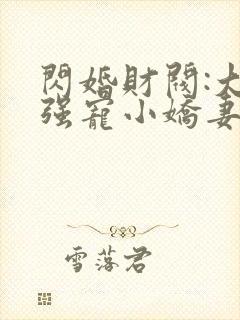 閃婚財閥:大
强寵小嬌妻
雪落君